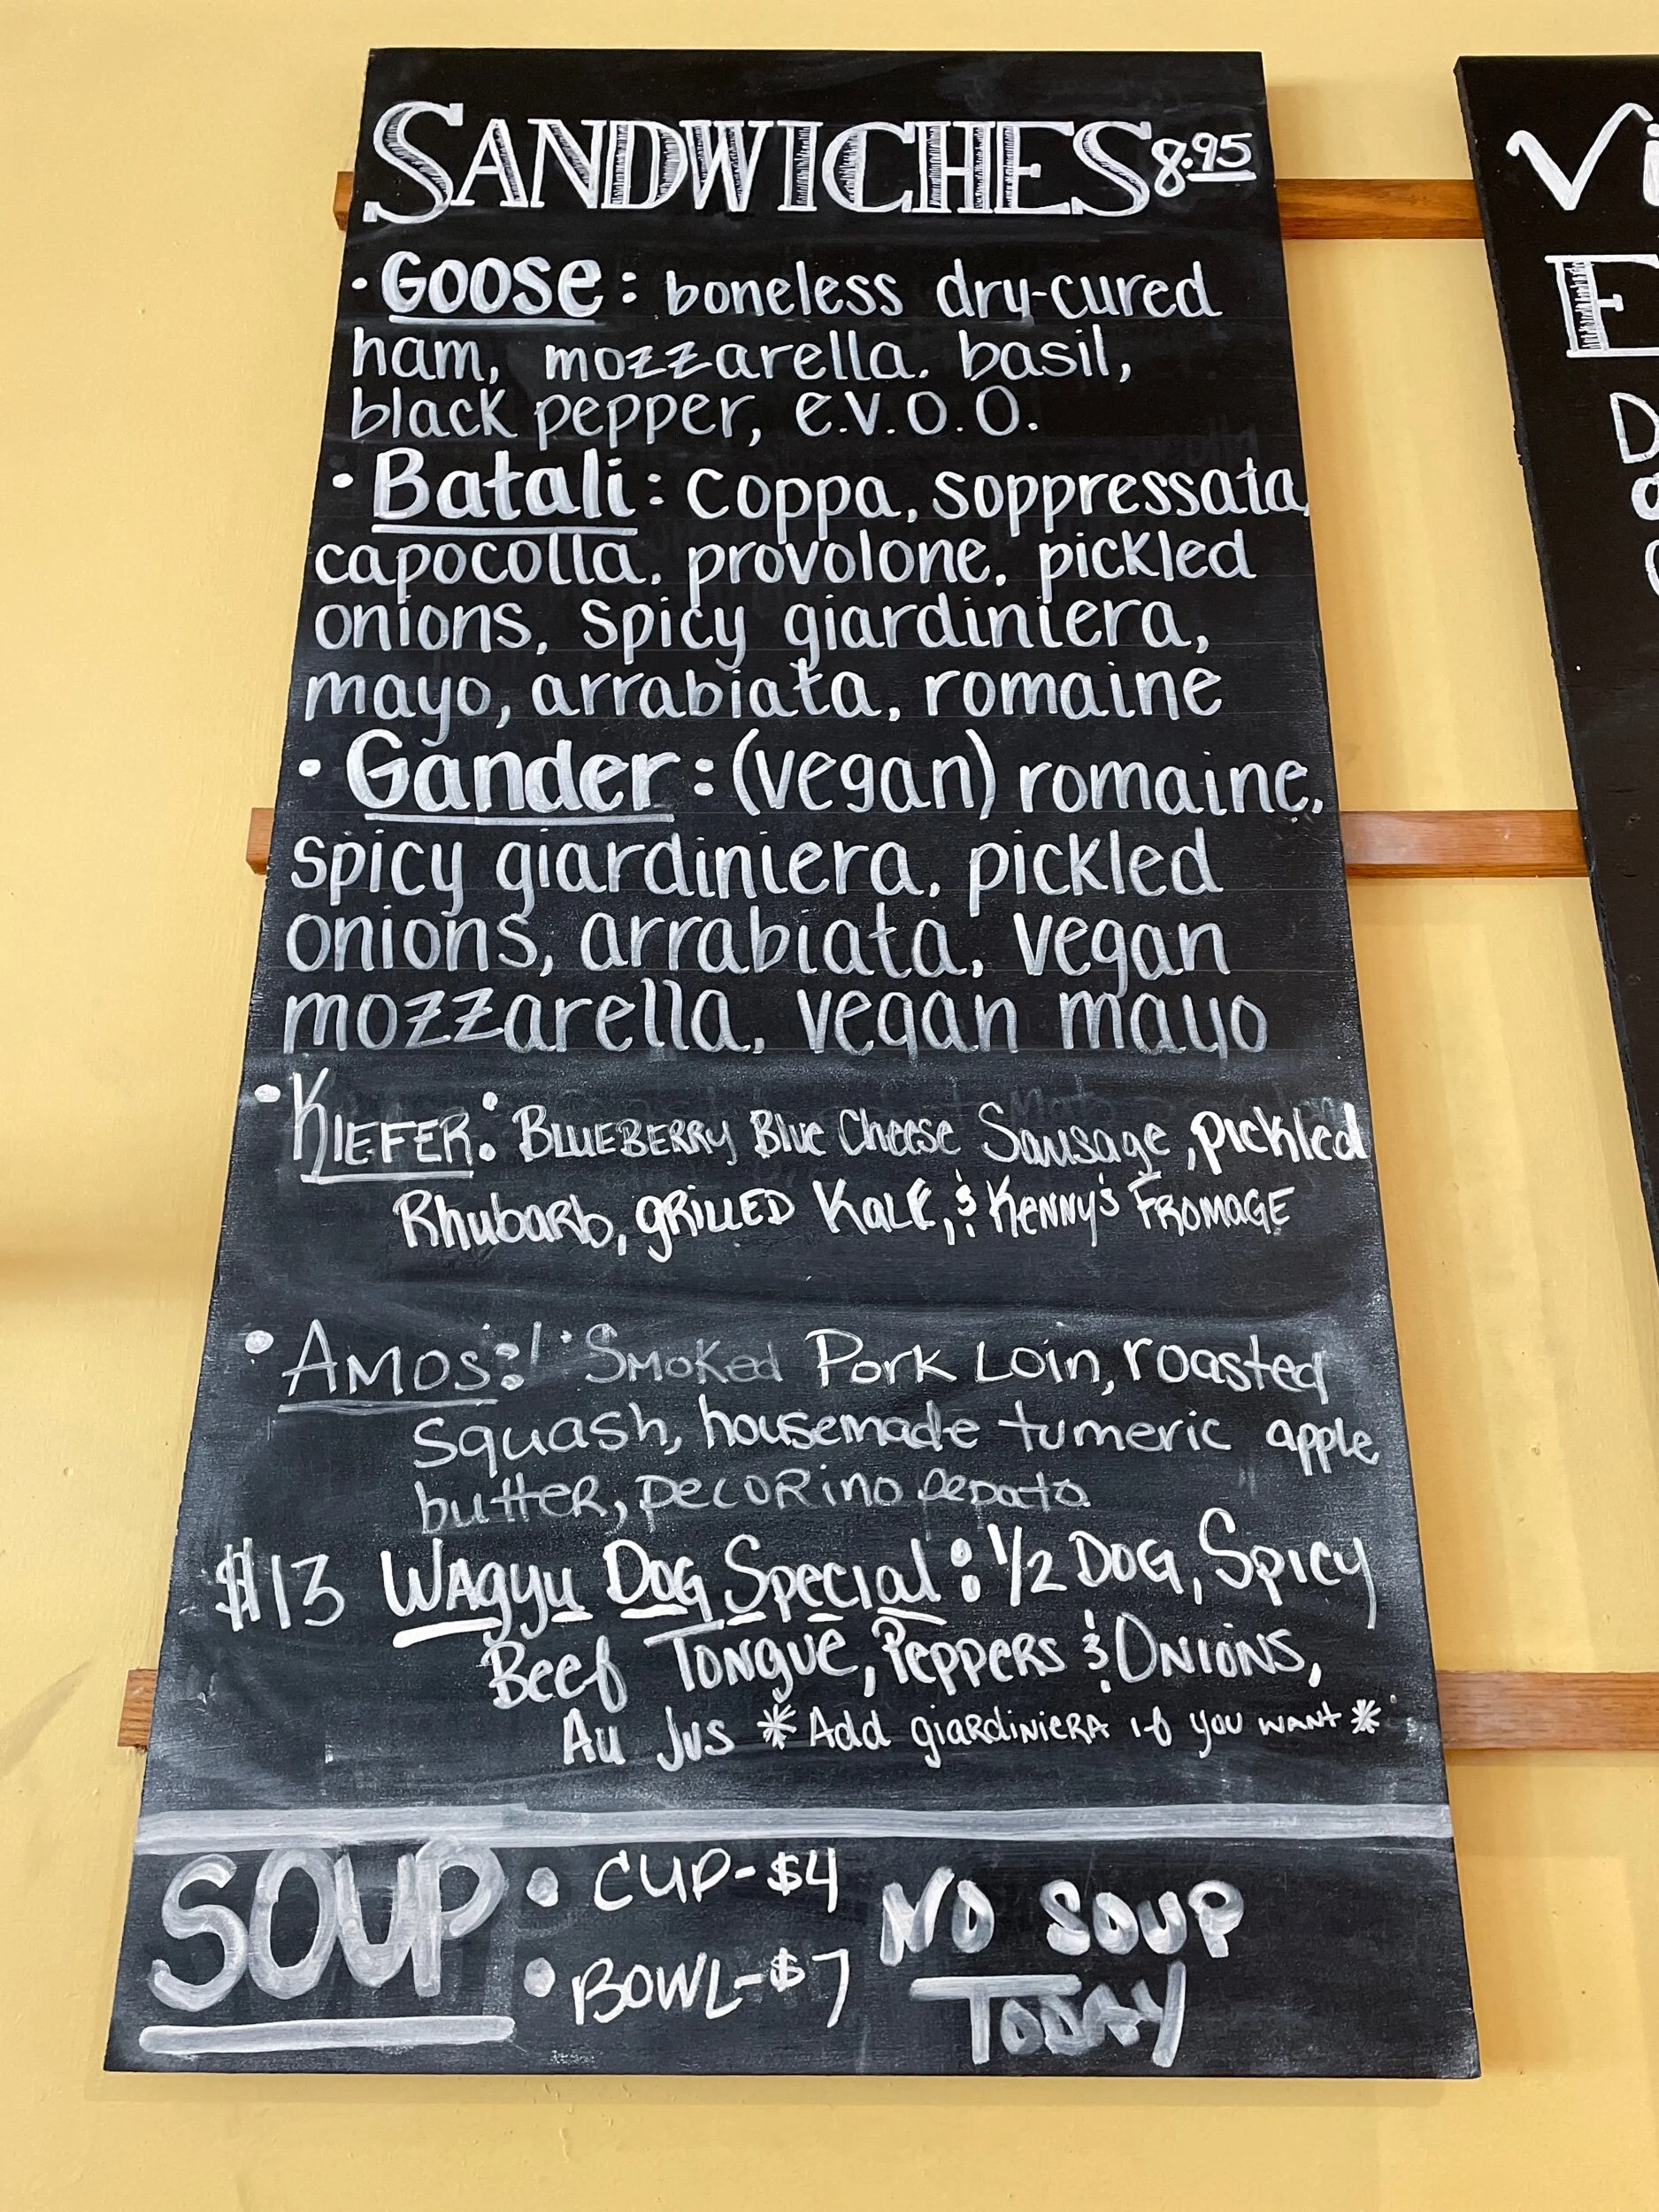 SANDWICHES 8.95
• Goose: boneless dry-cured
ham, mozzarella. basil,
black pepper, e.v.o.o.
• Batali: coppa, soppressata,
capocolla, provolone, pickled
onions, spicy giardiniera,
mayo, arrabiata, romaine
• Gander: (vegan) romaine,
spicy giardiniera, pickled
onions, arrabiata, vegan
mozzarella, vegan mayo
• KIEFER: BLUEBERRY Blue Cheese Sausage, pickled
Rhubarb, GRILLED KALE, & KENNY'S FROMAGE
• AMOS: Smoked Pork Loin, roasted
squash, housemade tumeric apple
butter, pecorino pepato
$13 Wagyu Dog Special: 1/2 Dog, Spicy
Beef Tongue, Peppers & Onions,
Au Jus *Add giardiniera if you want*
SOUP • CUP-$4 NO SOUP
• BOWL-$7 TODAY
Vi
E
D